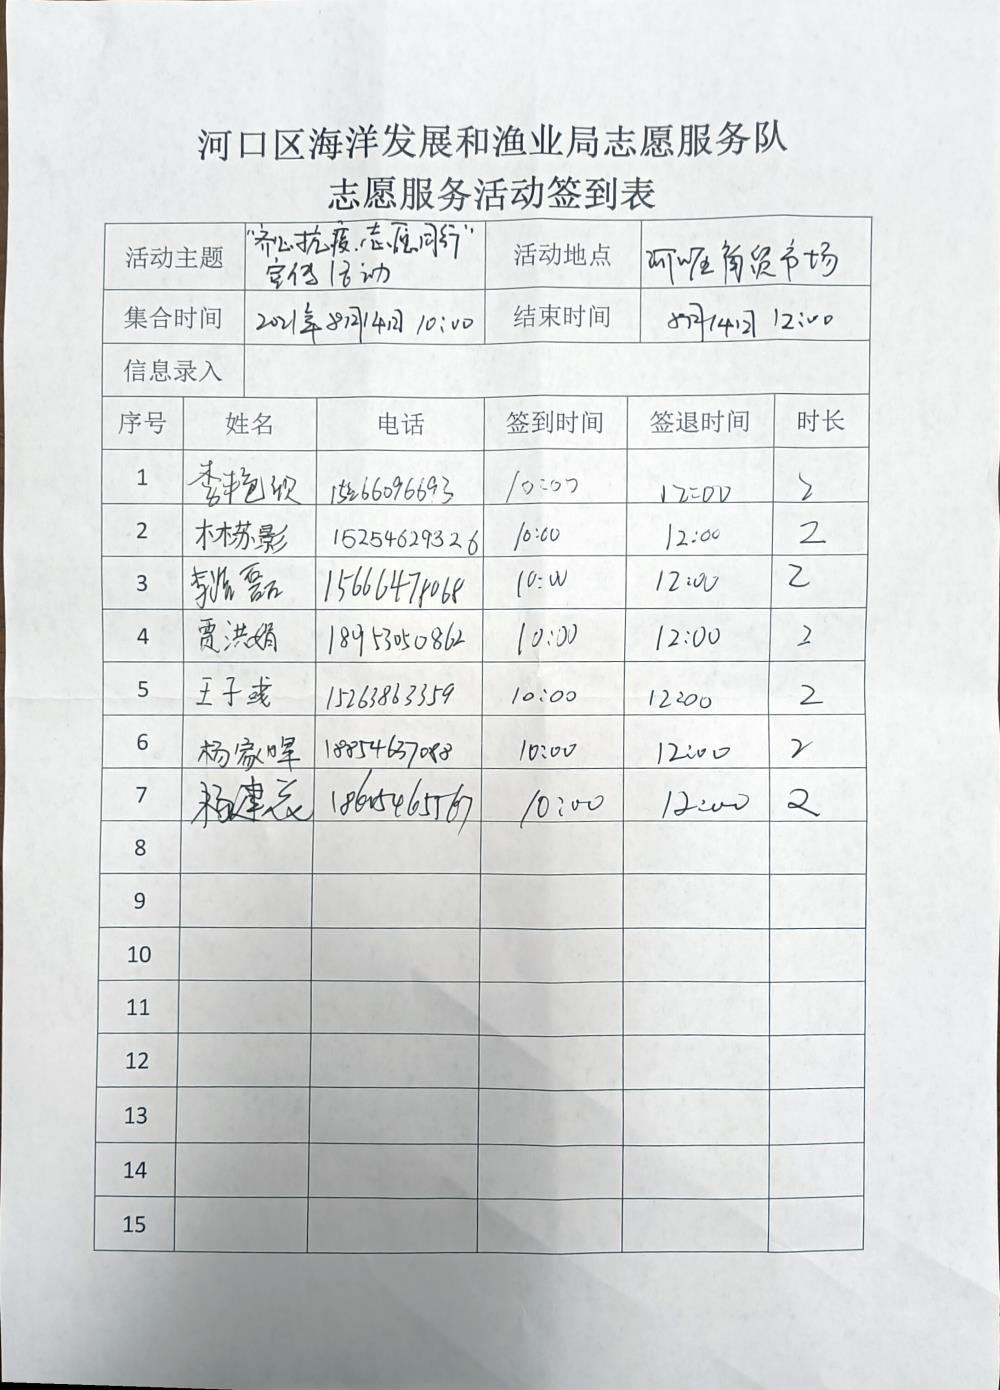 河口区海洋发展和渔业局志愿服务队
志愿服务活动签到表
活动主题 “齐心抗疫、志愿同行” 活动地点
宣传活动 商贸市场
集合时间 2021年8月14日 10:00 结束时间 8月14日 12:00
信息录入
序号 姓名 电话 签到时间 签退时间 时长
1 李艳欣 15266096693 10:00 12:00 2
2 林苏影 15254629326 10:00 12:00 2
3 李浩磊 15666478068 10:00 12:00 2
4 贾洪娟 18953050862 10:00 12:00 2
5 王子彧 15263863359 10:00 12:00 2
6 杨家晖 18854637088 10:00 12:00 2
7 杨建 10:00 12:00 2
8
9
10
11
12
13
14
15